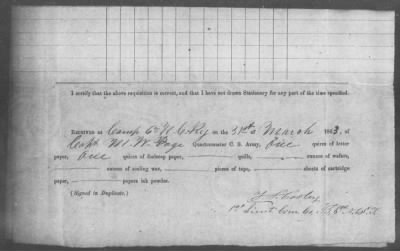 I certify that the above requisition is correct, and that I have not drawn Stationery for any part of the time specified.
RECEIVED at Camp 6th N C Reg on the 31st of March 1863, of
Capt M. W. Page Quartermaster C. S. Army, One quires of letter
paper, One quires of foolscap paper, quills, ounces of wafers,
ounces of sealing wax, pieces of tape, sheets of cartridge
paper, papers ink powder.
(Signed in Duplicate.)
1st Lieut Com Co.